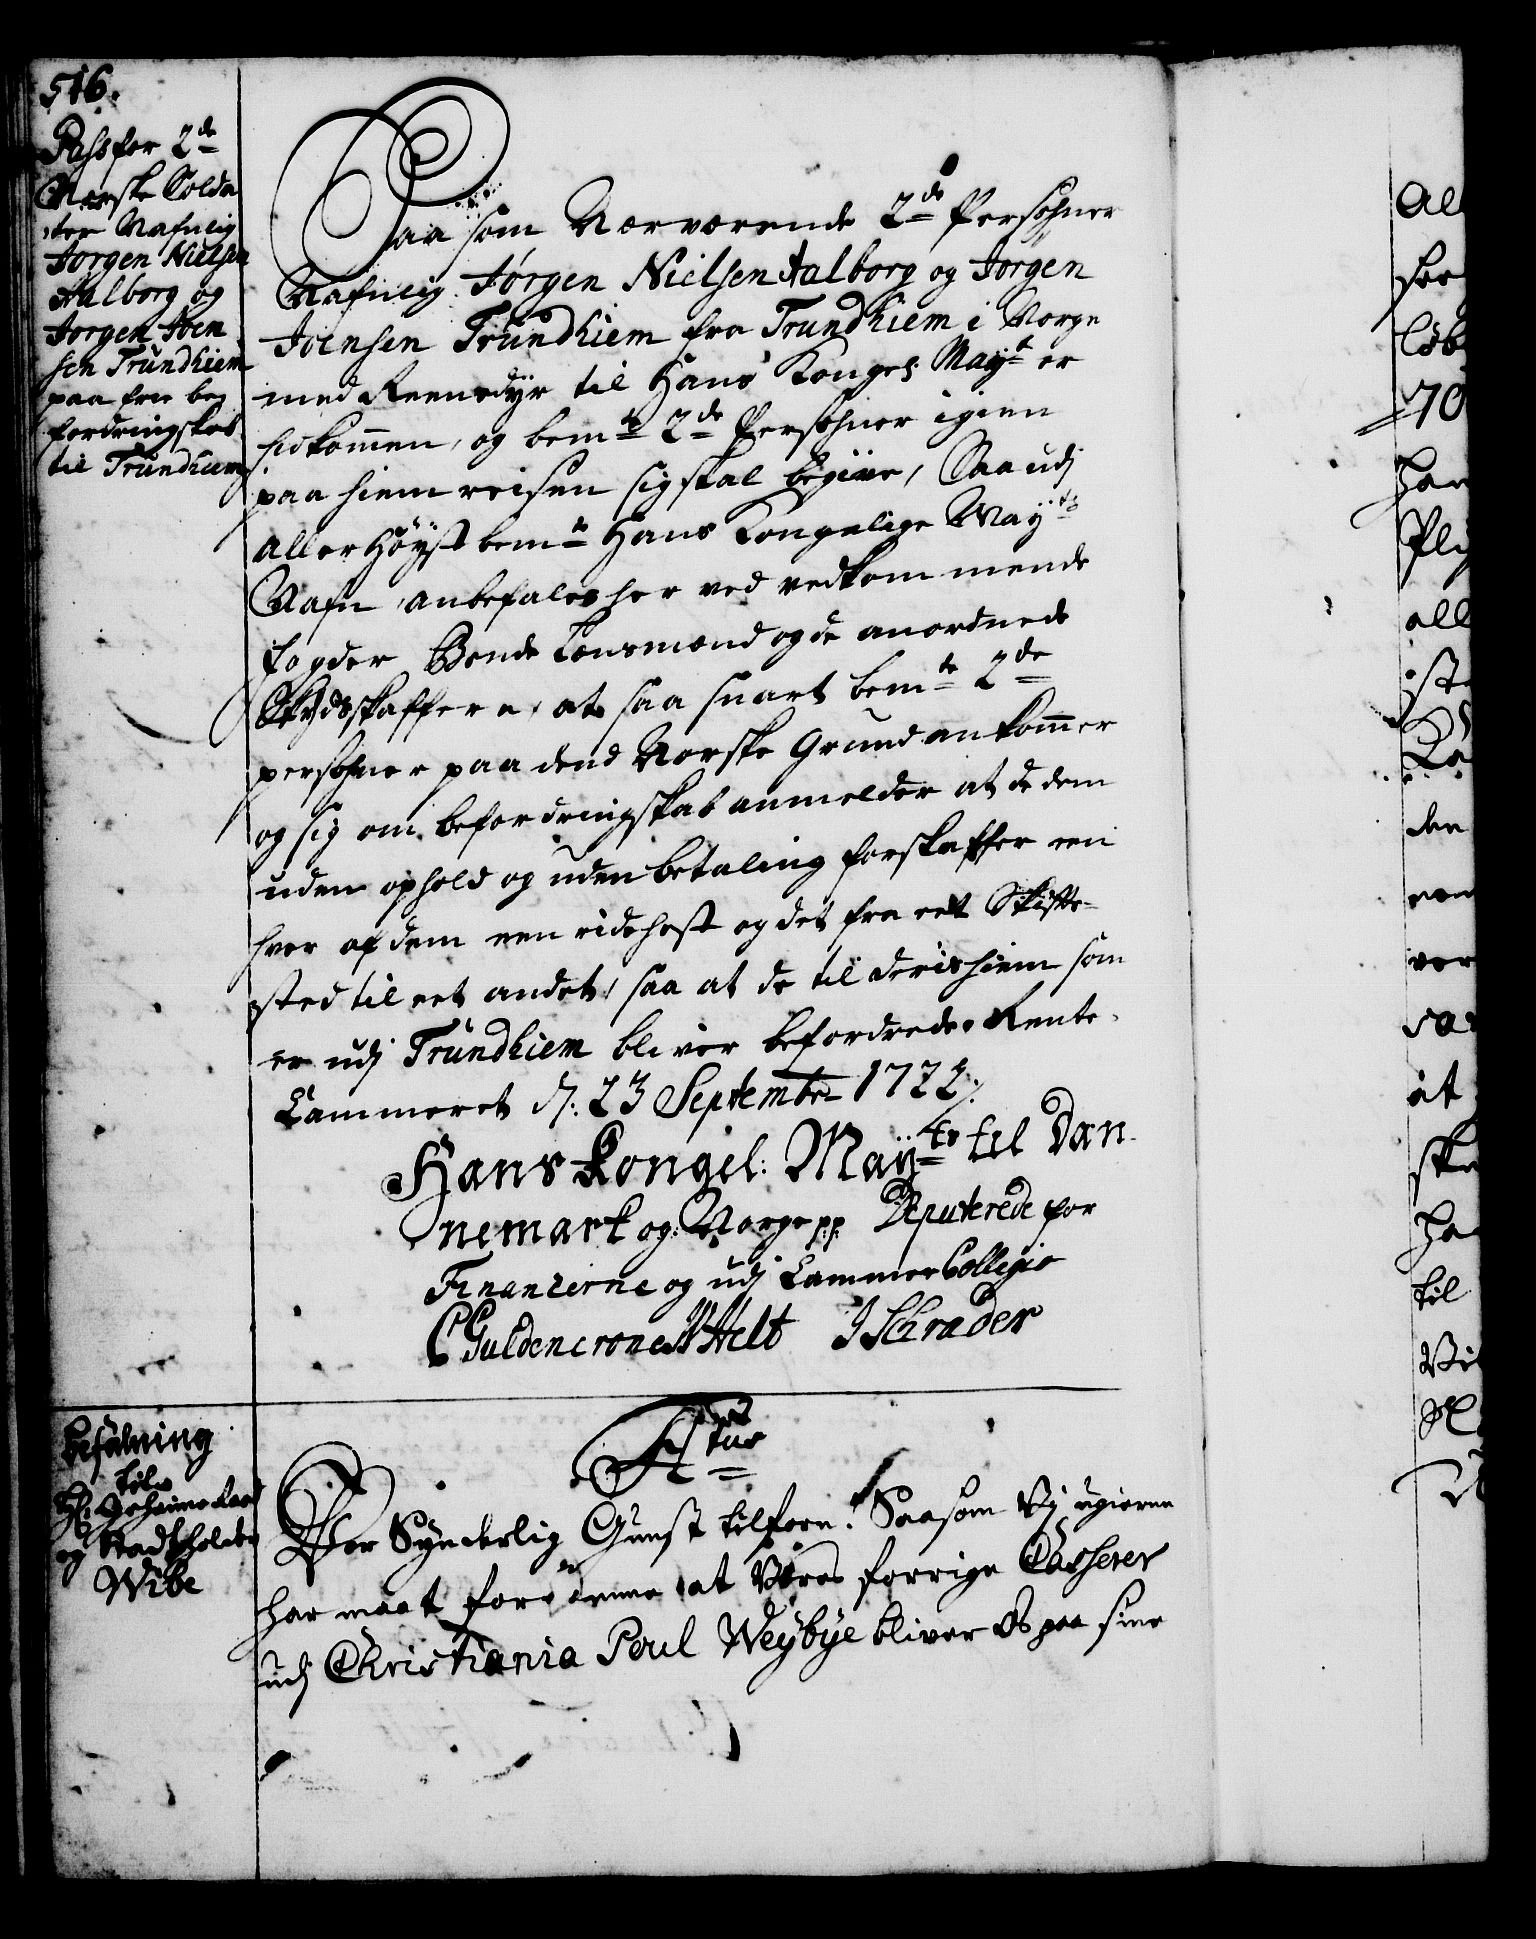 516.
Pass for 2de
Norske Solda
ter Nafnlig
Jorgen Nielsen
Aalborg og
Jorgen Joen
sen Trundhiem
paa frie be
fordringskab
til Trundhiem
Saa som Nærværende 2de Persohner
Nafnlig Jørgen Nielsen Aalborg og Jorgen
Joensen Trundhiem fra Trundhiem i Norge
med Reensdyr til Hans Konges Mayt er
hidkommen, og bemte 2de Persohner igien
paa hiemreisen sig skal begive, Saa udj
allerhøyst bemte Hans Kongelige Mayts
Nafn, anbefales her ved vedkommende
fogder Bønde Lensmænd og de anordnede
Skydsskaffere, at saa snart bemte 2de
persohner paa dend Norske Grund ankommer
og sig om befordringskab anmelder at de dem
uden ophold og uden betaling forskaffer een
hver af dem een ridehest og det fra eet Skifte-
sted til eet andet, saa at de til deris hiem som
er udj Trundhiem bliver befordrede. Rente-
Cammeret d: 23 Septembr 1722.
Hans Kongel: Mayts til Dan-
nemark og Norge pp Deputerede for
Financerne og udj Cammer Collegio
C Guldencrone W Helt J Schrader
Befalning
til
H: Geheime Raad
og Stadtholder
Wibe
Vor Synderlig Gunst tilforn. Saasom Vj ugierne
har maat fornemme at Vores forrige Casserer
udj Christiania Poul Weybye bliver Os paa sine
All
70
all
at
til